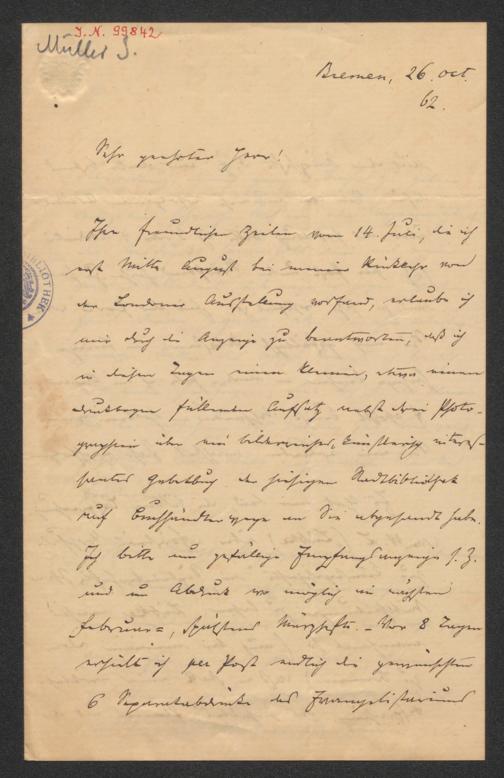 I.N. 99842
Müller J.
Bremen, 26. oct.
62.
Sehr geehrter Herr!
Ihre freundlichen Zeilen vom 14. Juli, die ich
erst Mitte August bei meiner Rückkehr von
der Londoner Ausstellung vorfand, erlaube ich
mir durch die Anzeige zu beantworten, daß ich
in diesen Tagen einen kleinen, etwa einen
Druckbogen füllenden Aufsatz nebst drei Photo-
graphien über ein bilderreiches, künstlerisch interes-
santes Gebetbuch der hiesigen Stadtbibliothek
auf Buchhändlerwege an Sie abgesandt habe.
Ich bitte um gefällige Empfangsanzeige s. Z.
und um Abdruck wo möglich im nächsten
Februar=, spätestens Märzhefte. – Vor 8 Tagen
erhielt ich per Post endlich die gewünschten
6 Separatabdrücke des Evangelistariums
BLIOTHEK